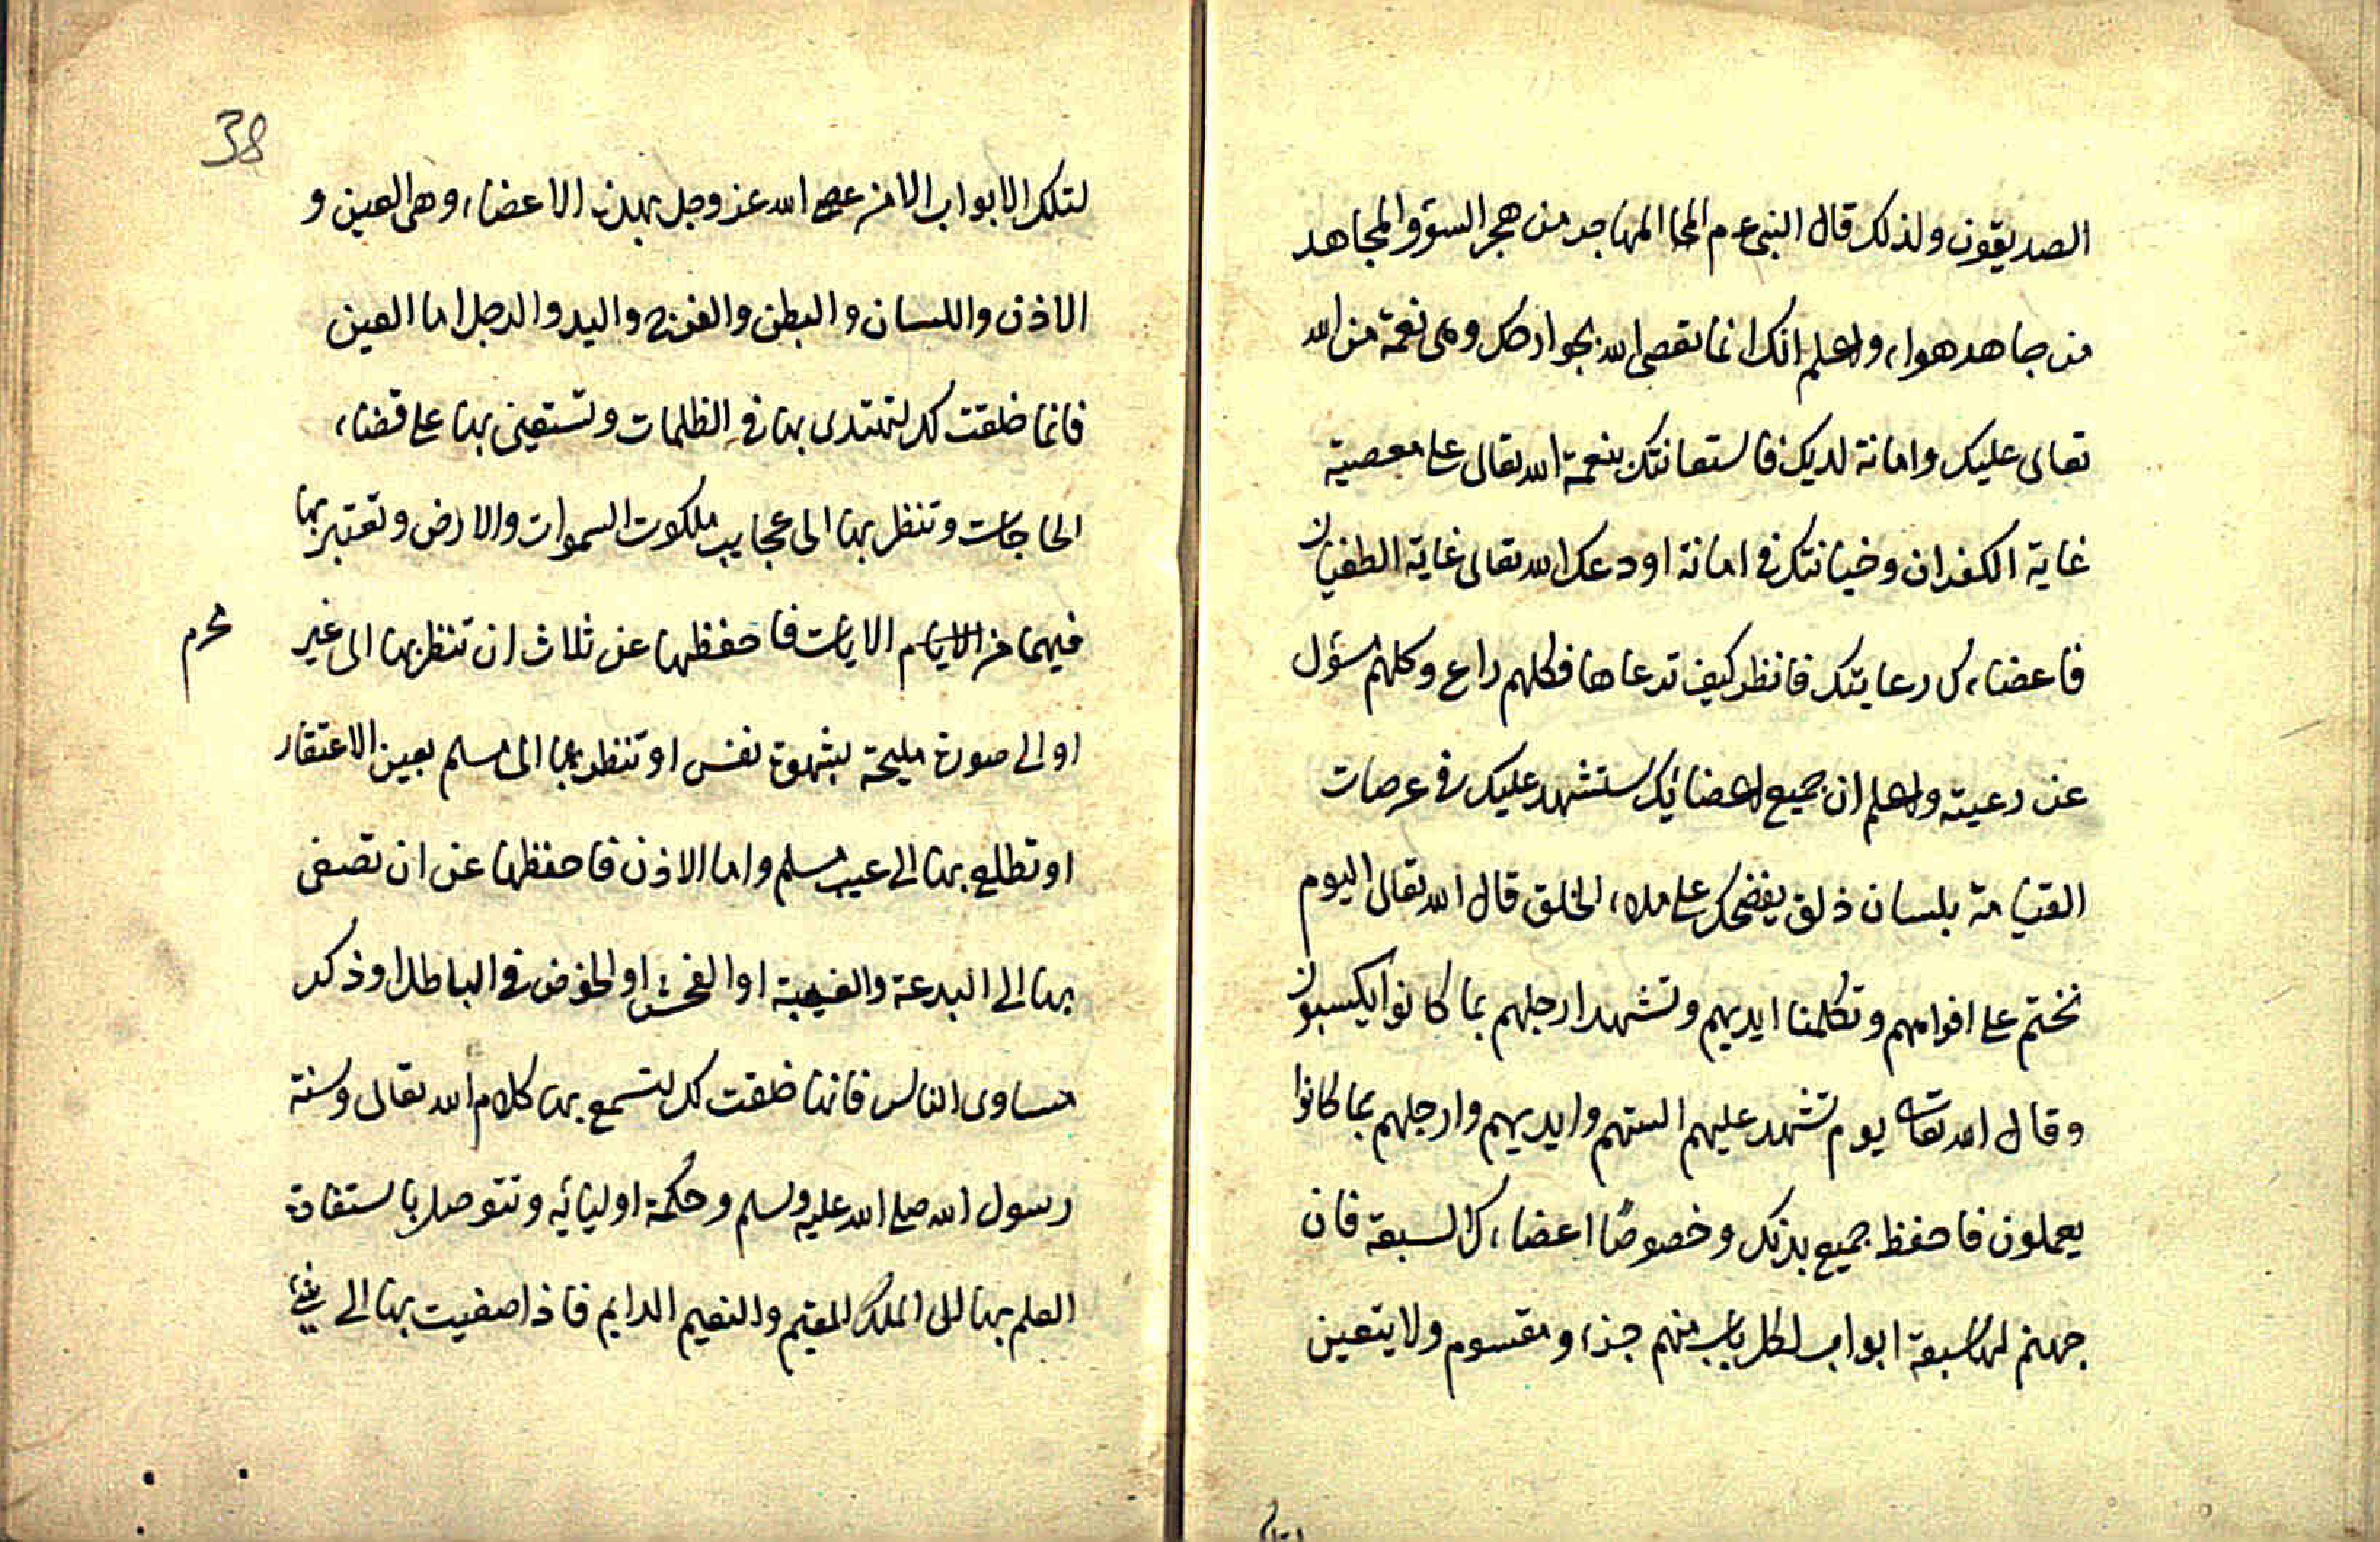 الصديقون ولذلك قال النبي عم المها المهاجر من هجر السوٴ والمجاهد
من جاهد هواء واعلم انك انما تعصى الله بجوارحك وهى نعمة من الله
تعالى عليك وامانة لديك فاستعانتك بنعمة الله تعالى على معصيته
غاية الكفران وخيانتك فى امانة اودعك الله تعالى غاية الطغيان
فاعضاءك رعايتك فانظر كيف ترعاها فكلهم راع وكلهم مسؤل
عن رعيته واعلم ان جميع اعضائك ستشهد عليك فى عرصات
القيامة بلسان ذلق يفضحك على ملاء الخلق قال الله تعالى اليوم
نختم على افواههم وتكلمنا ايديهم وتشهد ارجلهم بما كانوا يكسبون
وقال الله تعالى يوم تشهد عليهم السنتهم وايديهم وارجلهم بما كانوا
يعملون فاحفظ جميع بدنك وخصوصًا اعضاءك السبعة فان
جهنم لها سبعة ابواب لكل باب منهم جزء ومقسوم ولا يتعين
38
لتلك الابواب الا من عصى الله عز وجل بهذه الاعضاء وهى العين و
الاذن واللسان والبطن والفرج واليد والرجل اما العين
فانما خلقت لك لتهتدى بها فى الظلمات وتستعين بها على قضاء
الحاجات وتنظر بها الى عجايب ملكوت السموات والارض وتعتبر بها
فيهما من الايام الايات فاحفظها عن ثلاث ان تنظر بها الى غير
محرم
او الى صورة مليحة بشهوة نفس او تنظر بها الى مسلم بعين الاحتقار
او تطلع بها الى عيب مسلم واما الاذن فاحفظها عن ان تصغى
بها الى البدعة والغيبة او الفحش او الخوض فى الباطل او ذكر
مساوى الناس فانها خلقت لك لتسمع بها كلام الله تعالى وسنة
رسول الله صلى الله عليه وسلم وحكمة اوليائه وتتوصل باستفادة
العلم بها الى الملك المقيم والنعيم الدايم فاذا اصغيت بها الى شئ